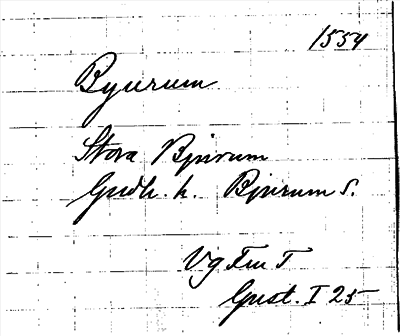 1554
Byurum
Stora Bjurum
Gudh. h. Bjurum s.
Vg Fm T
Gust. I 25